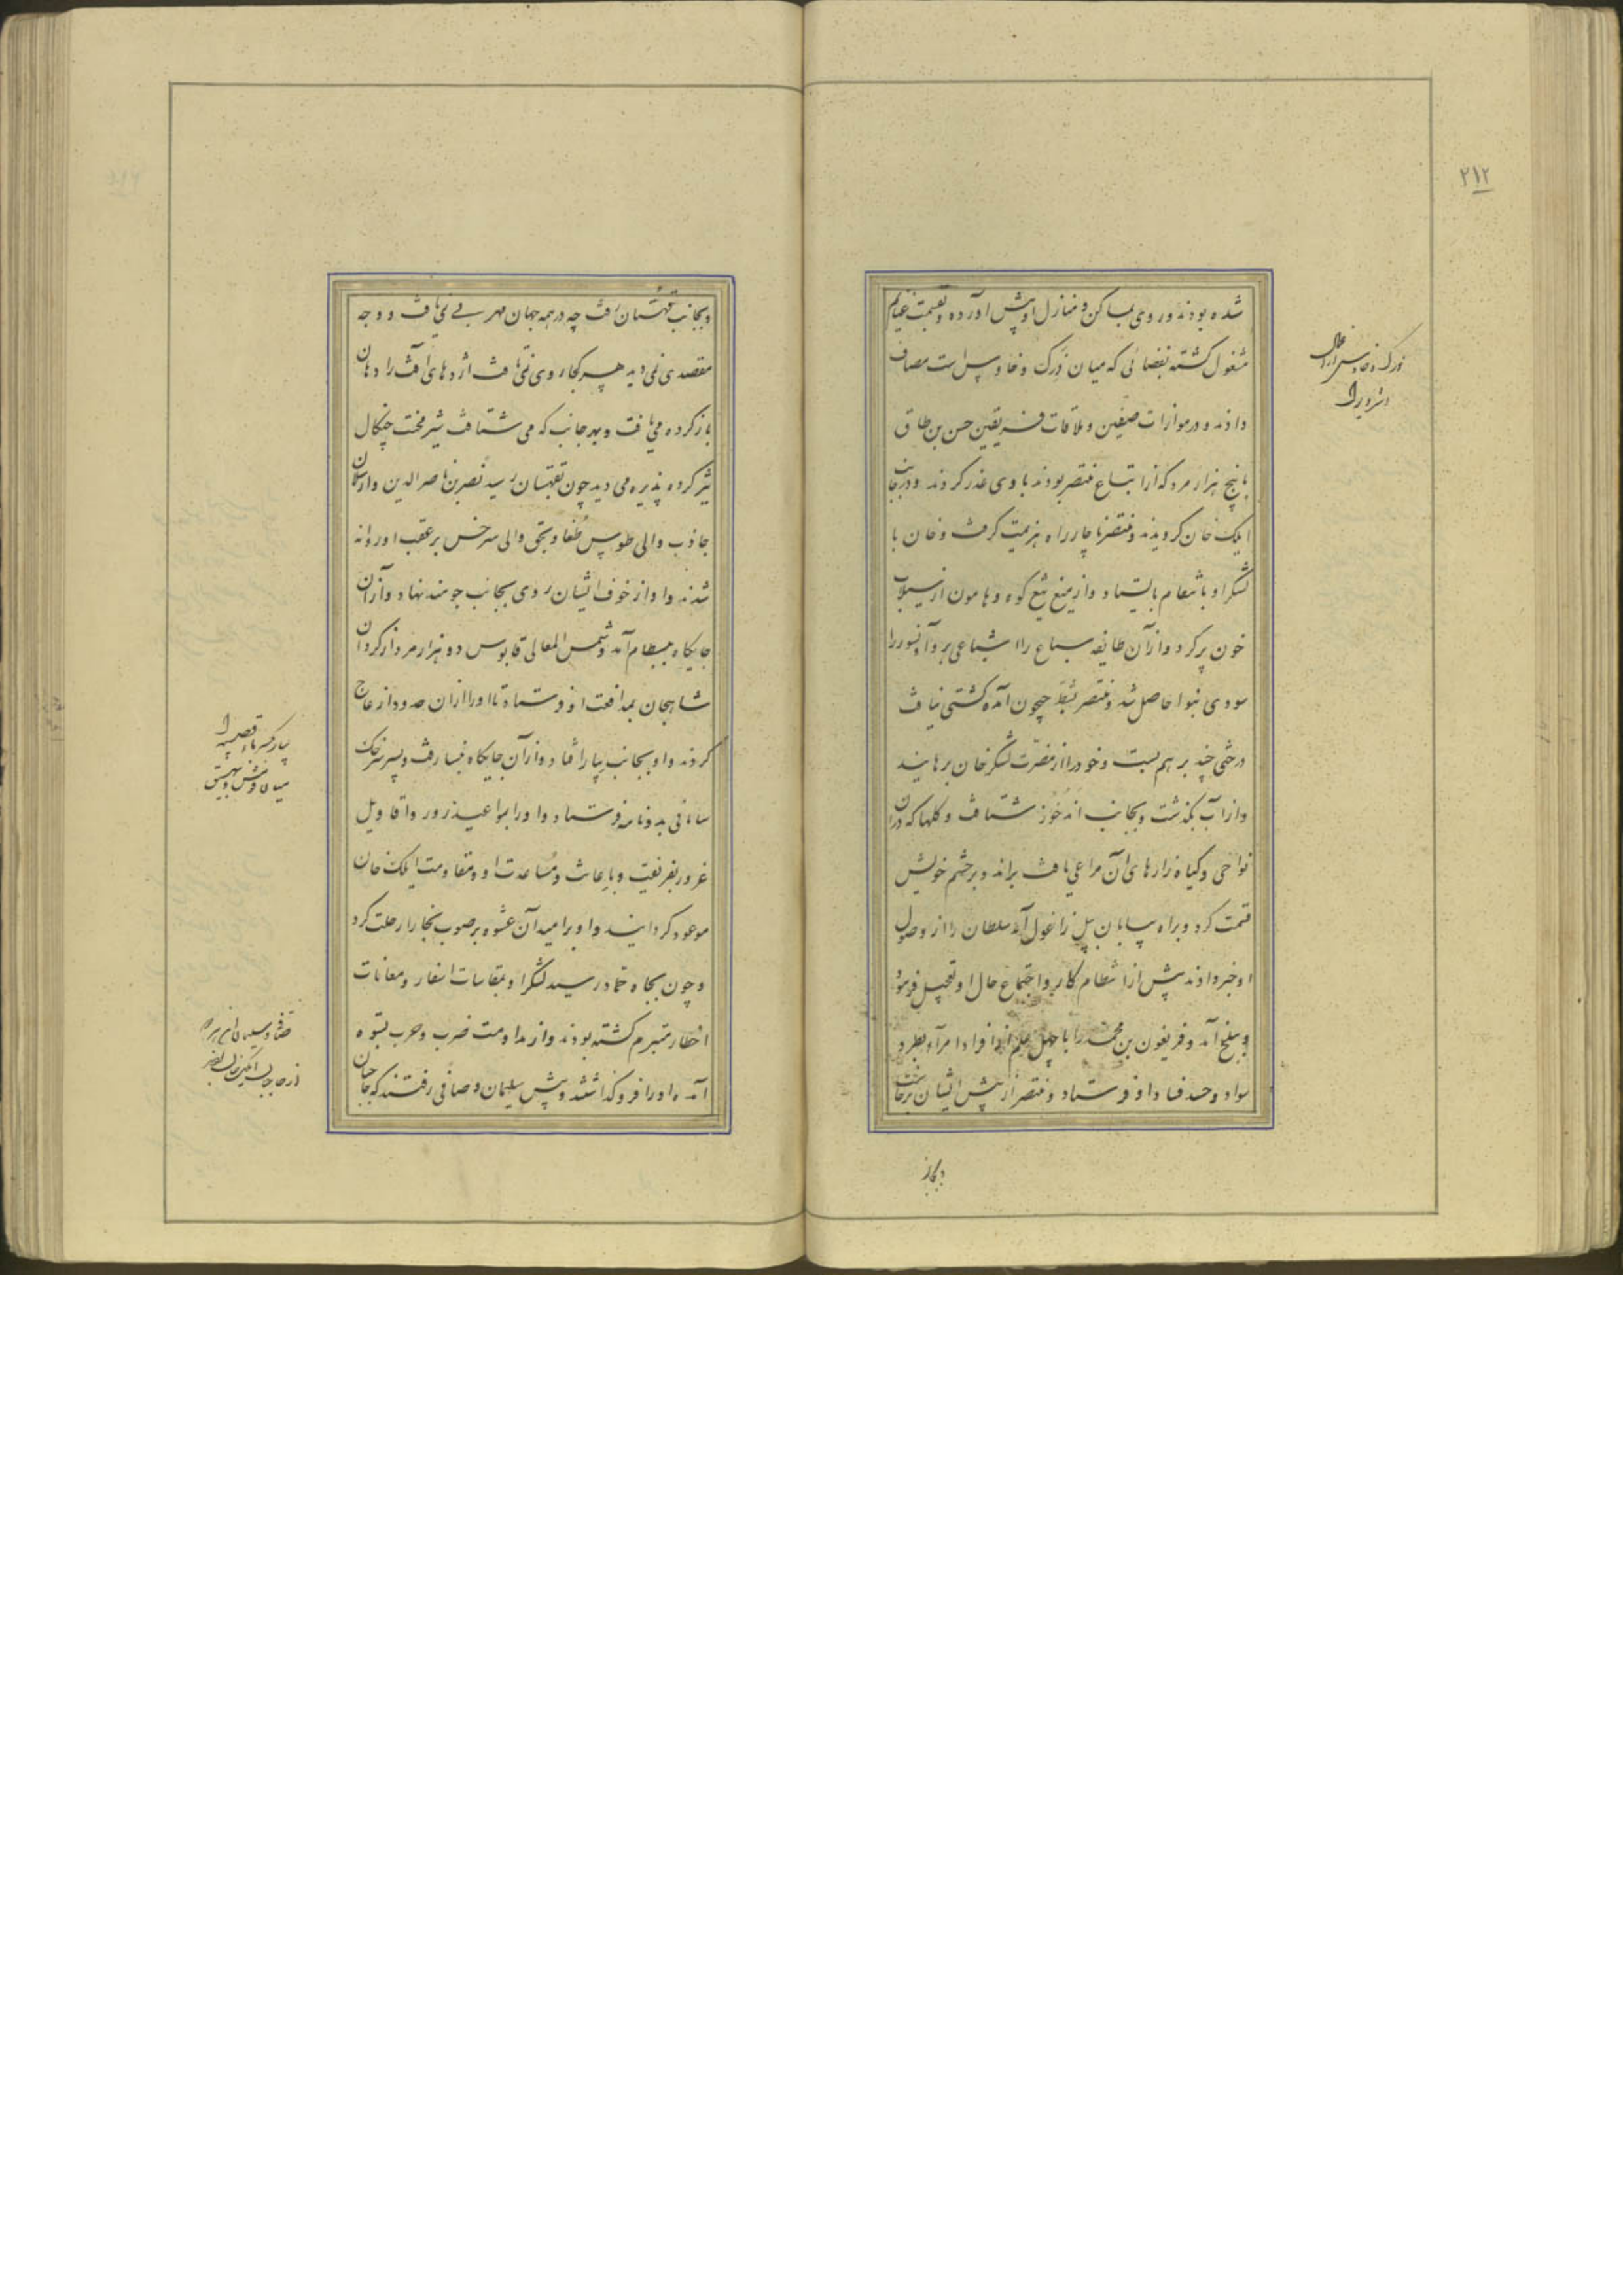 ۲۱۲
شده بودند و روی بمساکن و منازل اوپش آورده و بقسمت غنایم
مشغول کشته بفضائی که میان زرک و خاوس است مصاف
دادند و در موازات صفین و ملاقات فریقین حسن بن طاق
با پنج هزار مرد که از اتباع منتصر بودند با وی غدر کردند و در جانب
ایلک خان کردیدند و منتصر ناچار راه هزیمت کرفت و خان با
لشکر او باشقام بایستاد و از میغ تیغ کوه و هامون از سیلاب
خون پر کرد و از آن طایفه سباع را اشباعی بر و آن نسور را
سودی بنوا حاصل شد و منتصر بشط جیحون آمد کشتی نیافت
درختی چند بر هم بست و خود را از مضرت لشکر خان برهانید
و از آب بگذشت و بجانب اندخوذ شتافت و کلها که در آن
نواحی و کیاه زارهای آن مراعی یافت براند و بر حشم خویش
قسمت کرد و براه بیابان پل زاغول آمد سلطان را از وصول
او خبر دادند پیش از انتظام کار و اجتماع حال او تعجیل فرمود
و ببلخ آمد و فریغون بن محمد را با چهل علم از افراد امرا بطرد
سواد و حسد فساد او فرستاد و منتصر از پیش ایشان برخاست
و بجانب
و بجانب قهستان رفت چه در همه جهان مهربی نمی یافت و وجه
مقصدی نمی دید هر کجا روی نمی تافت اژدهای آفت را دهان
باز کرده می یافت و بهر جانب که می شتافت شیر محنت چنکال
تیز کرده پذیره می دید چون بقهستان رسید نصر بن ناصر الدین و ارسلان
جاذب والی طوس و طغانجق والی سرخس بر عقب او روانه
شدند و او از خوف ایشان روی بجانب جومند نهاد و از آن
جایکاه ببسطام آمد و شمس المعالی قابوس دو هزار مرد از کردان
شاهجان بمدافعت او فرستاد تا او را از آن حدود ازعاج
کردند و او بجانب بیار افتاد و از آن جایکاه بنسا رفت و پسر سرخک
سامانی بدو نامه فرستاد و او را بمواعید زور و اقاویل
غرور بفریفت و باعانت و مساعدت او و مقاومت ایلک خان
موعود کردانید و او بر امید آن عشوه بر صوب بخارا رحلت کرد
و چون بچاه حماد رسید لشکر او بمقاسات اسفار و معانات
اخطار متبرم کشته بودند و از مداومت ضرب و حرب بستوه
آمده او را فرو گذاشتند و پیش سلیمان و صافی رفتند که حاجبان